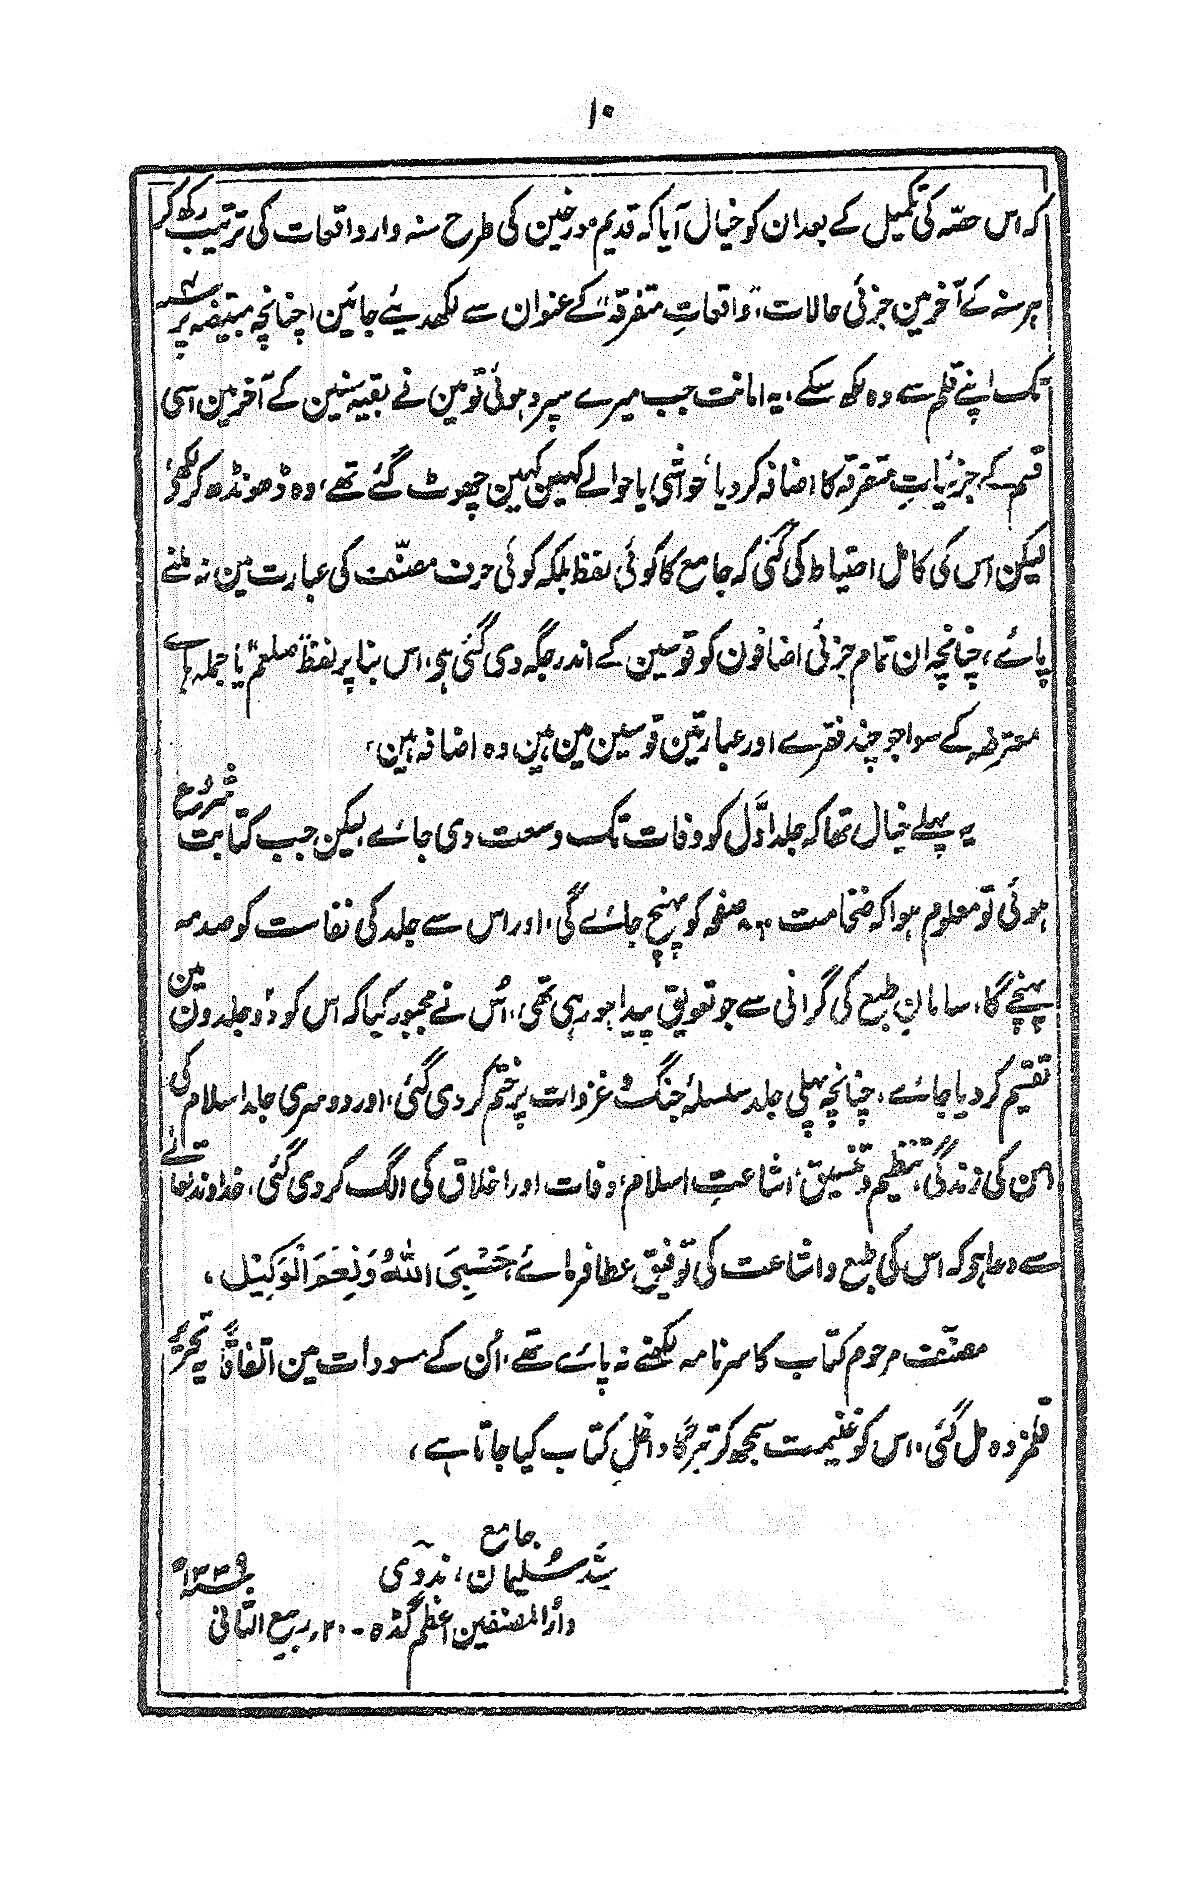 ۱۰
کہ اس حصّہ کی تکمیل کے بعد ان کو خیال آیا کہ قدیم مورخین کی طرح سنہ وار واقعات کی ترتیب رکھ کر
ہر سنہ کے آخر مین جزئی حالات، "واقعاتِ متفرقہ" کے عنوان سے لکھدیئے جائین، چنانچہ مبیضہ پر سنہ
تک اپنے قلم سے وہ لکھ سکے، یہ امانت جب میرے سپرد ہوئی تو مین نے بقیہ سنین کے آخر مین اسی
قسم کے جزئیاتِ متفرقہ کا اضافہ کر دیا، حواشی یا حوالے کہین کہین چھوٹ گئے تھے، وہ ڈھونڈھ کر لکھے
لیکن اس کی کامل احتیاط کی گئی کہ جامع کا کوئی لفظ بلکہ کوئی حرف مصنّف کی عبارت مین نہ ملنے
پائے، چنانچہ ان تمام جزئی اضافون کو قوسین کے اندر جگہ دی گئی ہی، اس بنا پر لفظ "صلعم" یا جملہ ہاے
معترضہ کے سوا جو چند فقرے اور عبارتین قوسین مین ہین وہ اضافہ ہین،
یہ پہلے خیال تھا کہ جلد اوّل کو وفات تک وسعت دی جائے لیکن جب کتابت شروع
ہوئی تو معلوم ہوا کہ ضخامت صفحہ کو پہنچ جائے گی، اور اس سے جلد کی نفاست کو صدمہ
پہنچے گا، سامانِ طبع کی گرانی سے جو تعویق پیدا ہو رہی تھی، اُس نے مجبور کیا کہ اس کو دو جلدون مین
تقسیم کر دیا جائے، چنانچہ پہلی جلد سلسلۂ جنگ و غزوات پر ختم کر دی گئی، اور دوسری جلد اسلام کی
امن کی زندگی، تنظیم و تنسیق، اشاعتِ اسلام، وفات اور اخلاق کی الگ کر دی گئی، خداوند تعالےٰ
سے دعا ہو کہ اس کی طبع و اشاعت کی توفیق عطا فرمائے، حَسْبِیَ اللّٰہُ وَنِعْمَ الْوَکِیْل،
مصنّف مرحوم کتاب کا سرنامہ لکھنے نہ پائے تھے، اُن کے مسودات مین اتفاقاً یہ تحریر
قلمزدہ مل گئی، اس کو غنیمت سمجھ کر تبرکاً داخلِ کتاب کیا جاتا ہے،
جامع
سیّد سُلیمان، ندوی
دارُ المصنفین اعظم گڈہ - ۲۰، ربیع الثانی ۱۳۳۶ھ